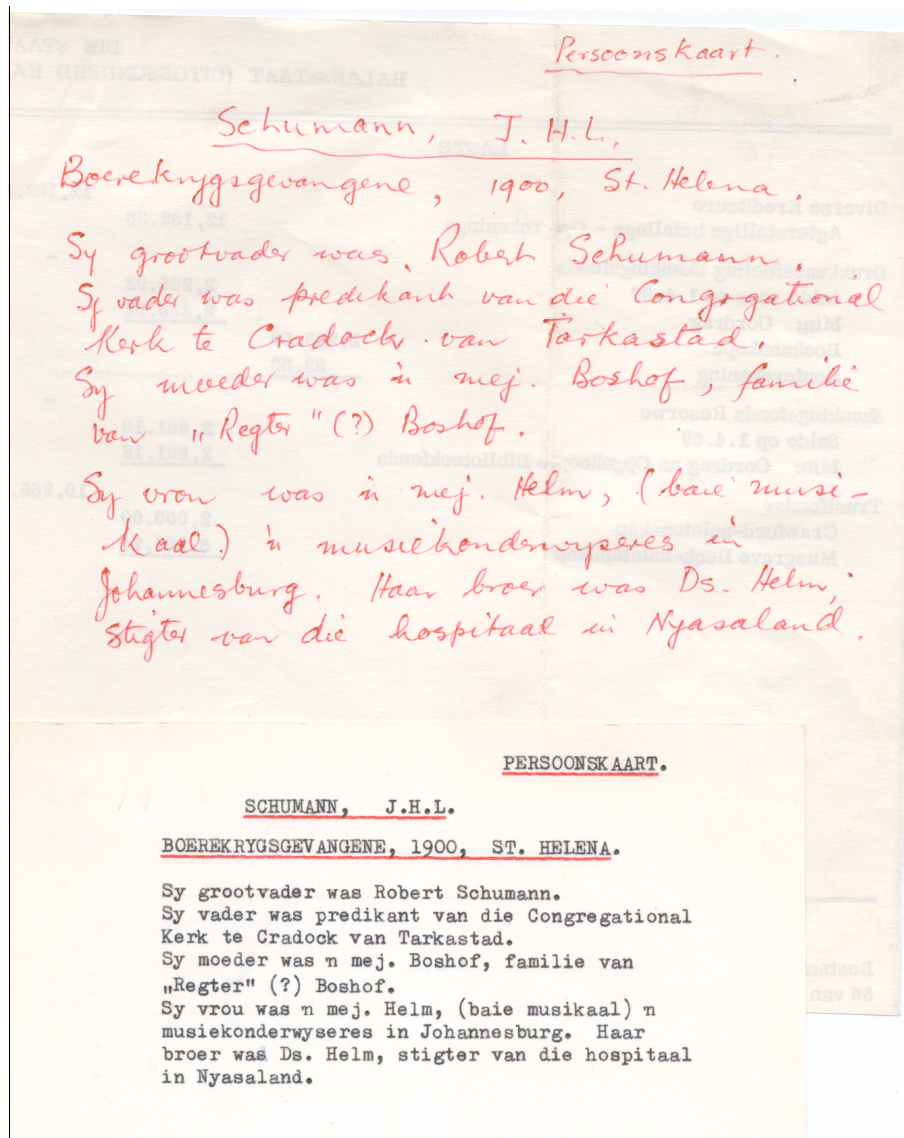 Persoonskaart.
Schumann, J.H.L.,
Boerekrygsgevangene, 1900, St. Helena.
Sy grootvader was Robert Schumann.
Sy vader was predikant van die Congregational
Kerk te Cradock van Tarkastad.
Sy moeder was 'n mej. Boshof, familie
van „Regter" (?) Boshof.
Sy vrou was 'n mej. Helm, (baie musi-
kaal) 'n musiekonderwyseres in
Johannesburg. Haar broer was Ds. Helm,
stigter van die hospitaal in Nyasaland.
PERSOONSKAART.
SCHUMANN, J.H.L.
BOEREKRYGSGEVANGENE, 1900, ST. HELENA.
Sy grootvader was Robert Schumann.
Sy vader was predikant van die Congregational
Kerk te Cradock van Tarkastad.
Sy moeder was 'n mej. Boshof, familie van
„Regter" (?) Boshof.
Sy vrou was 'n mej. Helm, (baie musikaal) 'n
musiekonderwyseres in Johannesburg. Haar
broer was Ds. Helm, stigter van die hospitaal
in Nyasaland.